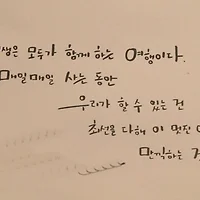 생은 모두가 함께 하는 여행이다.
매일매일 사는 동안
우리가 할 수 있는 건
최선을 다해 이 멋진
만끽하는